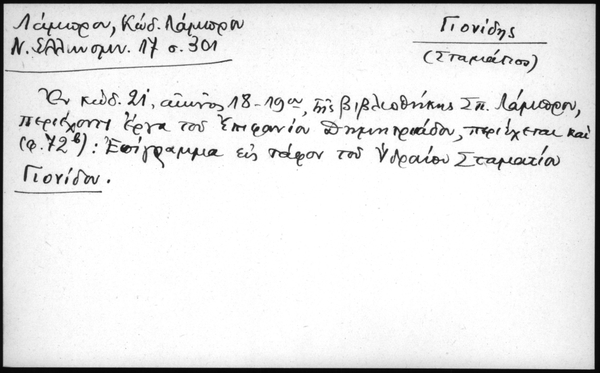 Λάμπρου, Κώδ. Λάμπρου
Ν. Ελληνομν. 17 σ. 301
Γιονίδης
(Σταμάτιος)
Ἐν κώδ. 21, αἰῶνος 18-19ου, τῆς βιβλιοθήκης Σπ. Λάμπρου,
περιέχοντι ἔργα τοῦ Ἐπιφανίου Δημητριάδου, περιέχεται καὶ
(φ. 72β): Ἐπίγραμμα εἰς τάφον τοῦ Ὑδραίου Σταματίου
Γιονίδου.